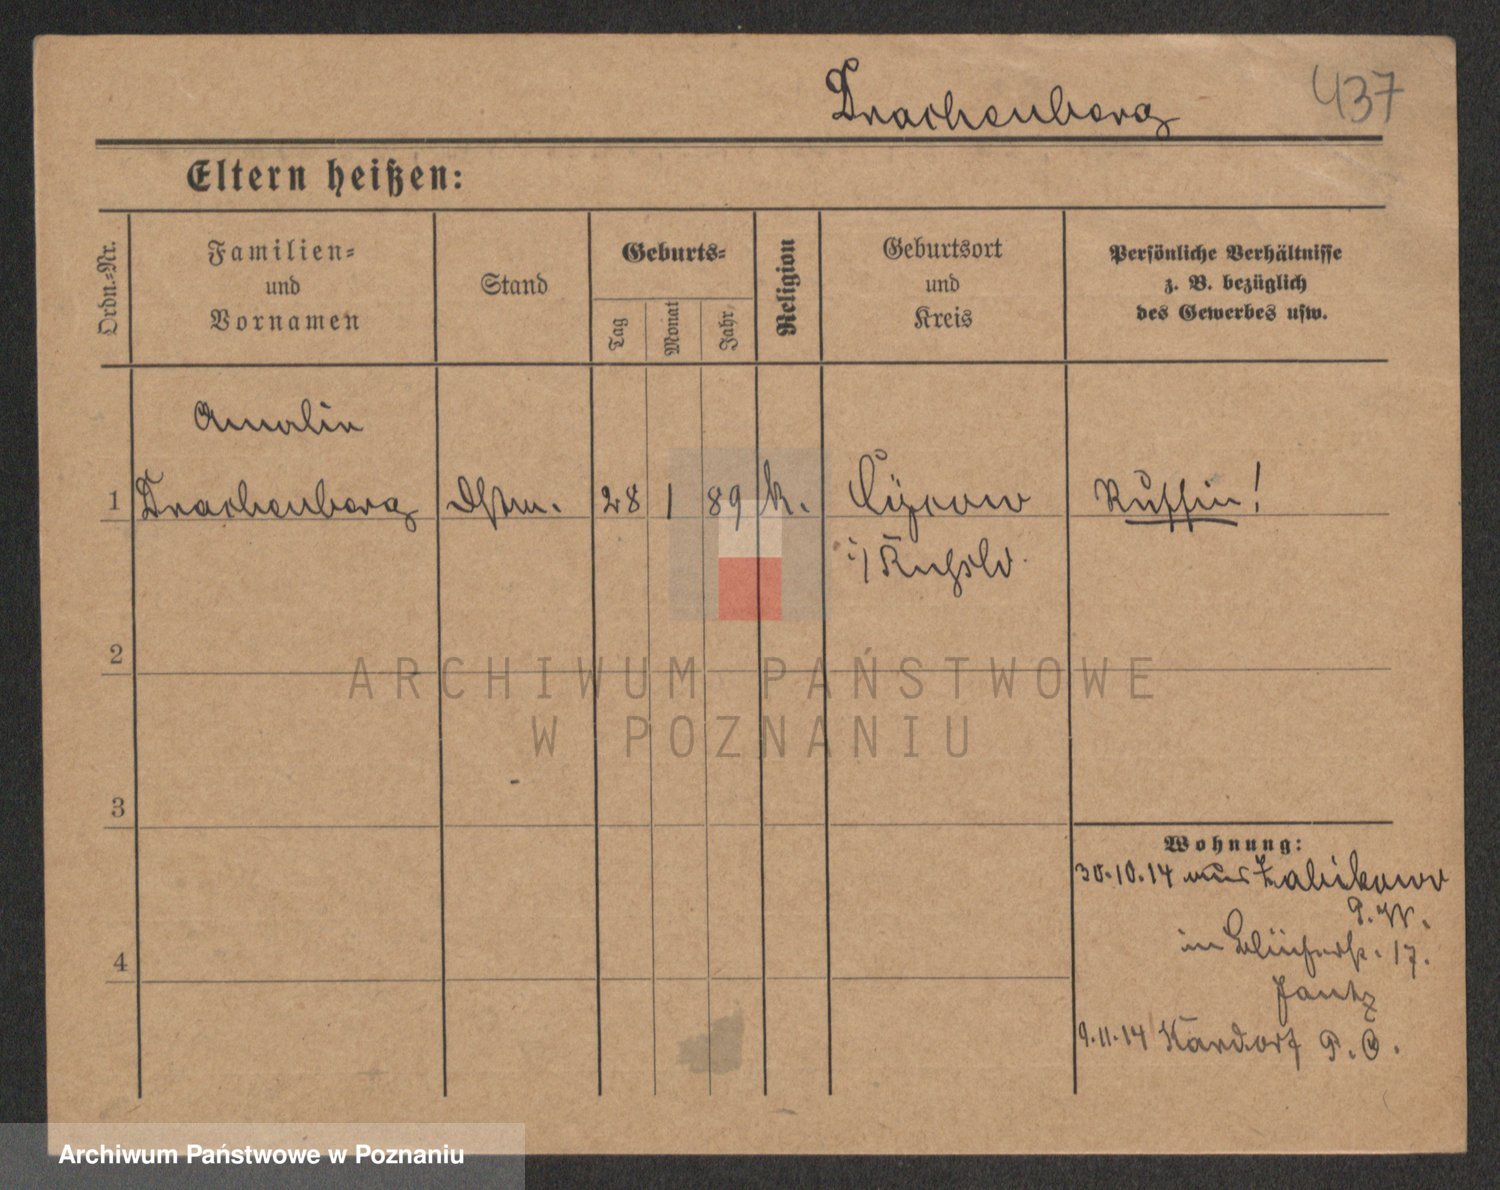 Drachenberg
437
Eltern heißen:
Ordn.=Nr.
Familien=
und
Vornamen
Stand
Geburts=
Tag
Monat
Jahr
Religion
Geburtsort
und
Kreis
Persönliche Verhältnisse
z. B. bezüglich
des Gewerbes usw.
Amalie
1 Drachenberg Dstm. 28 1 89 k. Russin!
i/ Rußld.
2
3
4
Wohnung:
30.10.14 aus Zabikowo
P. W.
in Blücherst. 17.
Jantz
9.11.14 Kardorf P. O.
ARCHIWUM PAŃSTWOWE
W POZNANIU
Archiwum Państwowe w Poznaniu